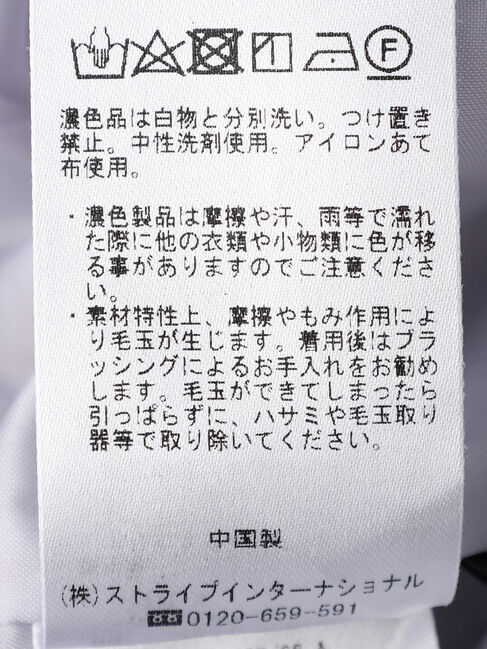 F
濃色品は白物と分別洗い。つけ置き
禁止。中性洗剤使用。アイロンあて
布使用。
・濃色製品は摩擦や汗、雨等で濡れ
た際に他の衣類や小物類に色が移
る事がありますのでご注意くださ
い。
・素材特性上、摩擦やもみ作用によ
り毛玉が生じます。着用後はブラ
ッシングによるお手入れをお勧め
します。毛玉ができてしまったら
引っぱらずに、ハサミや毛玉取り
器等で取り除いてください。
中国製
(株)ストライプインターナショナル
☎0120-659-591